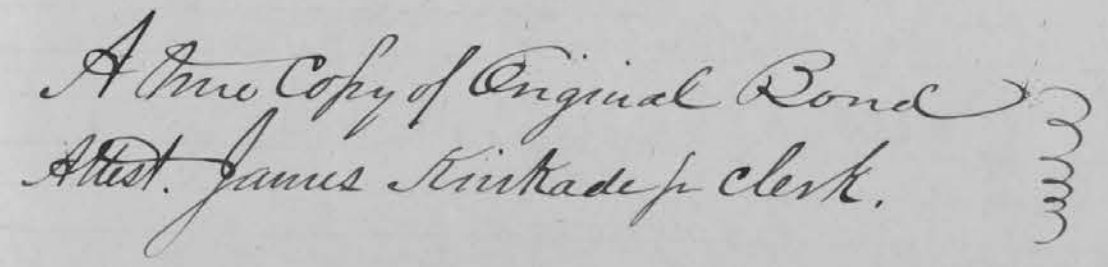 A true Copy of Original Bond
Attest. James Kinkade jr clerk.